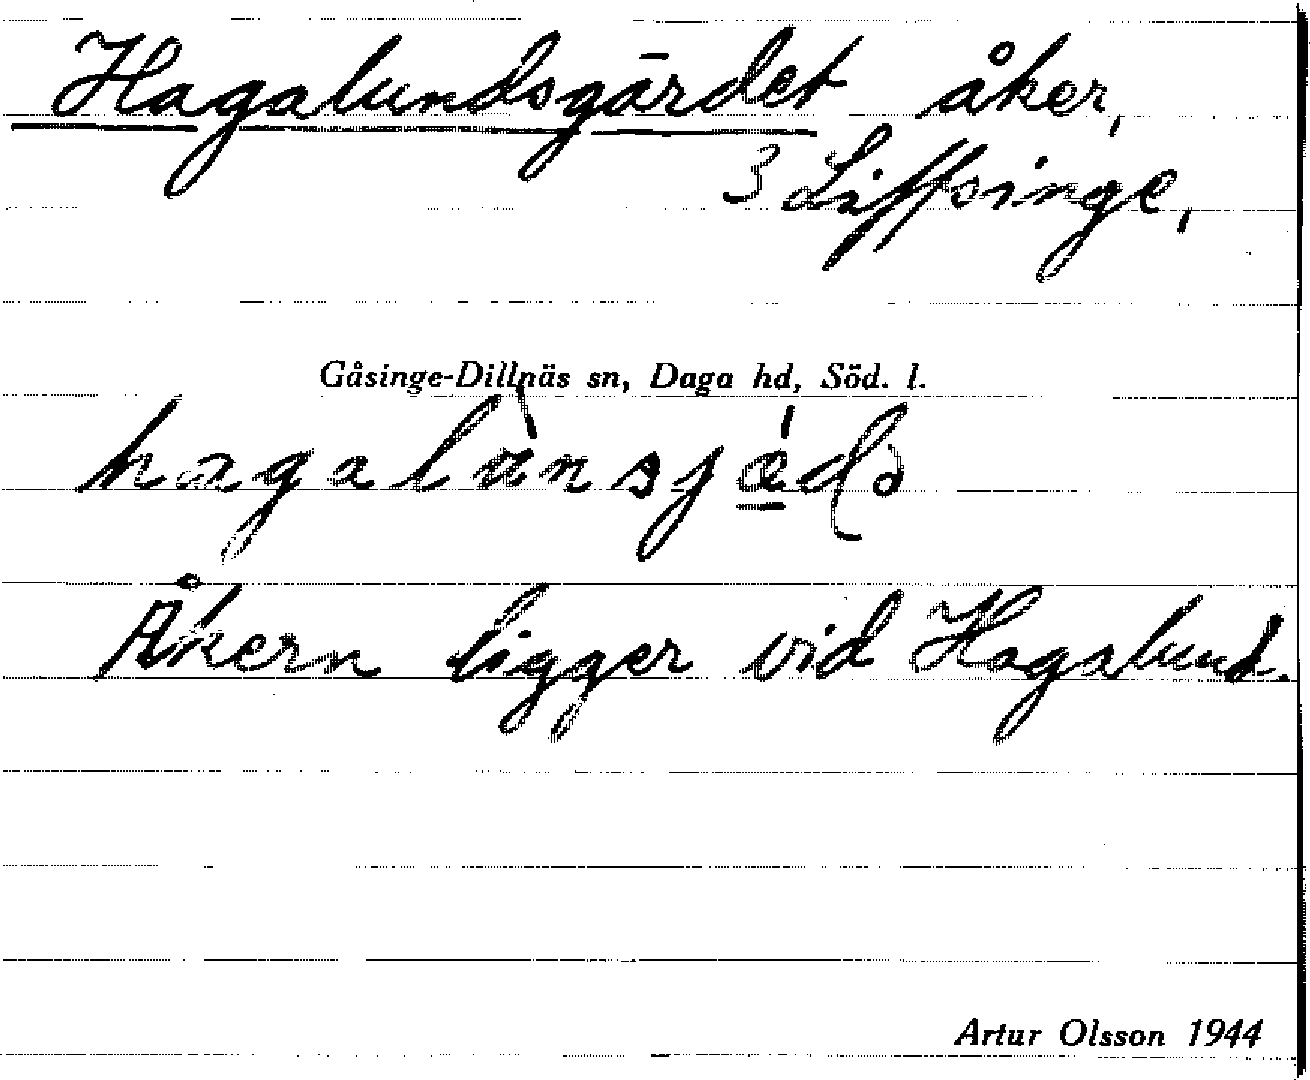 Hagalundsgärdet åker,
3 Liffsinge,
Gåsinge-Dillnäs sn, Daga hd, Söd. l.
Åkern ligger vid Hagalund.
Artur Olsson 1944